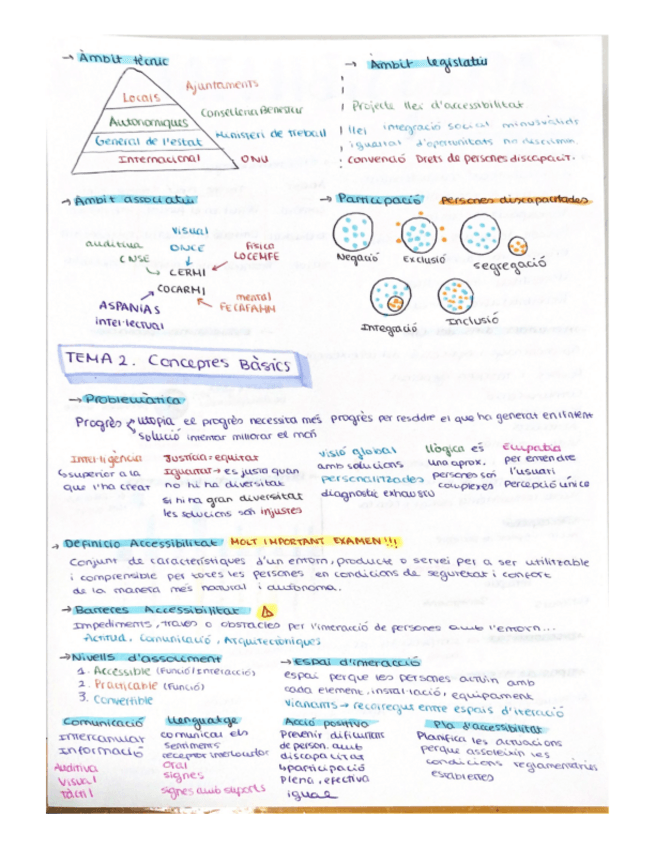 → Àmbit tècnic
Locals
Autonomiques
General de l'estat
Internacional
Ajuntaments
Conselleria Benestar
Ministeri de treball
ONU
→ Àmbit legislatiu
Projecte llei d'accessibilitat
llei integració social minusvàlids
igualtat d'oportunitats no descrimin.
convenció Drets de persones discapacit.
→ Àmbit associatiu
visual
auditiva
ONCE
física
CNSE
COCEMFE
CERMI
COCARMI
ASPANIAS
mental
FECAFAMM
intel·lectual
→ Participació persones discapacitades
Negació
Exclusió
segregació
Integració
Inclusió
TEMA 2. Conceptes Bàsics
→ Problemàtica
Progrés utopia el progrés necessita més progrés per resoldre el que ha generat
solució intentar millorar el món
Intel·ligència
↳ superior a la
que l'ha creat
Justícia = equitat
Igualtat → és justa quan
no hi ha diversitat
si hi ha gran diversitat
les solucions són injustes
visió global
amb solucions
personalitzades
diagnostic exhaustiu
Lògica és
una aprox.
persones són
complexes
Empatia
per entendre
l'usuari
Percepció única
→ Definició Accessibilitat MOLT IMPORTANT EXAMEN!!!
Conjunt de característiques d'un entorn, producte o servei per a ser utilitzable
i comprensible per totes les persones en condicions de seguretat i confort
de la manera més natural i autònoma.
→ Barreres Accessibilitat
Impediments, traves o obstacles per l'interacció de persones amb l'entorn...
Actitud, comunicació, Arquitectòniques
→ Nivells d'assoliment
1. Accessible (Funció/Interacció)
2. Practicable (Funció)
3. Convertible
→ Espai d'interacció
espai perquè les persones actuin amb
cada element, instal·lació, equipament
vianants → recorregus entre espais d'iteració
Comunicació
Intercanviar
Informació
Auditiva
Visual
tàctil
Llenguatge
comunicar els
sentiments
receptor interlocutor
oral
signes
signes amb suports
Acció positiva
Prevenir dificultats
de person. amb
discapacitat
↳ participació
plena, efectiva
igual
Pla d'accessibilitat
Planifica les actuacions
perquè assoleixin les
condicions reglamentàries
establertes